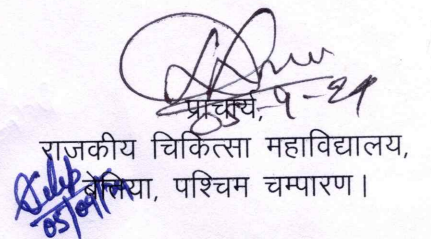 प्राचार्य,
राजकीय चिकित्सा महाविद्यालय,
बेतिया, पश्चिम चम्पारण।